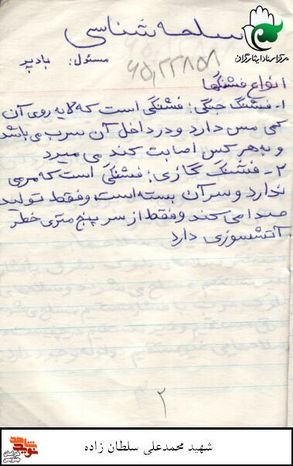 مرکز اسناد ایثارگران
اسلحه شناسی
مسئول: بادپر
انواع فشنگها
۱- فشنگ جنگی: فشنگی است که لایه روی آن
کمی مس دارد و در داخل آن سرب می باشد
و به هر کس اصابت کند می میرد
۲- فشنگ گازی: فشنگی است که مرمی
ندارد و سر آن بسته است و فقط تولید
صدا می کند و فقط از سر پنج متری خطر
آتشسوزی دارد
۲
شهید محمدعلی سلطان زاده